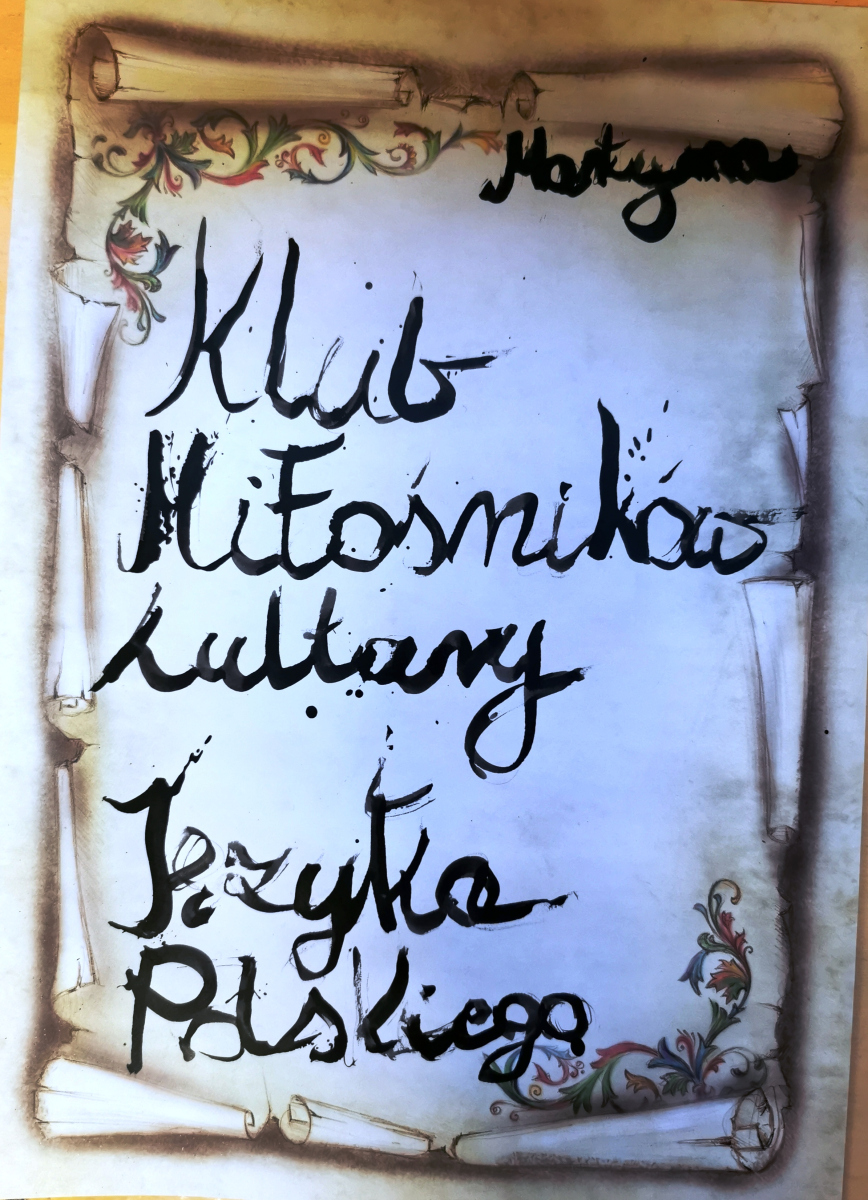 Martyna
Klub
Miłośników
kultury
Języka
Polskiego